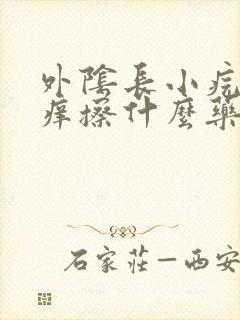 外陰長小疙
痒擦什麼藥
石家莊—西安